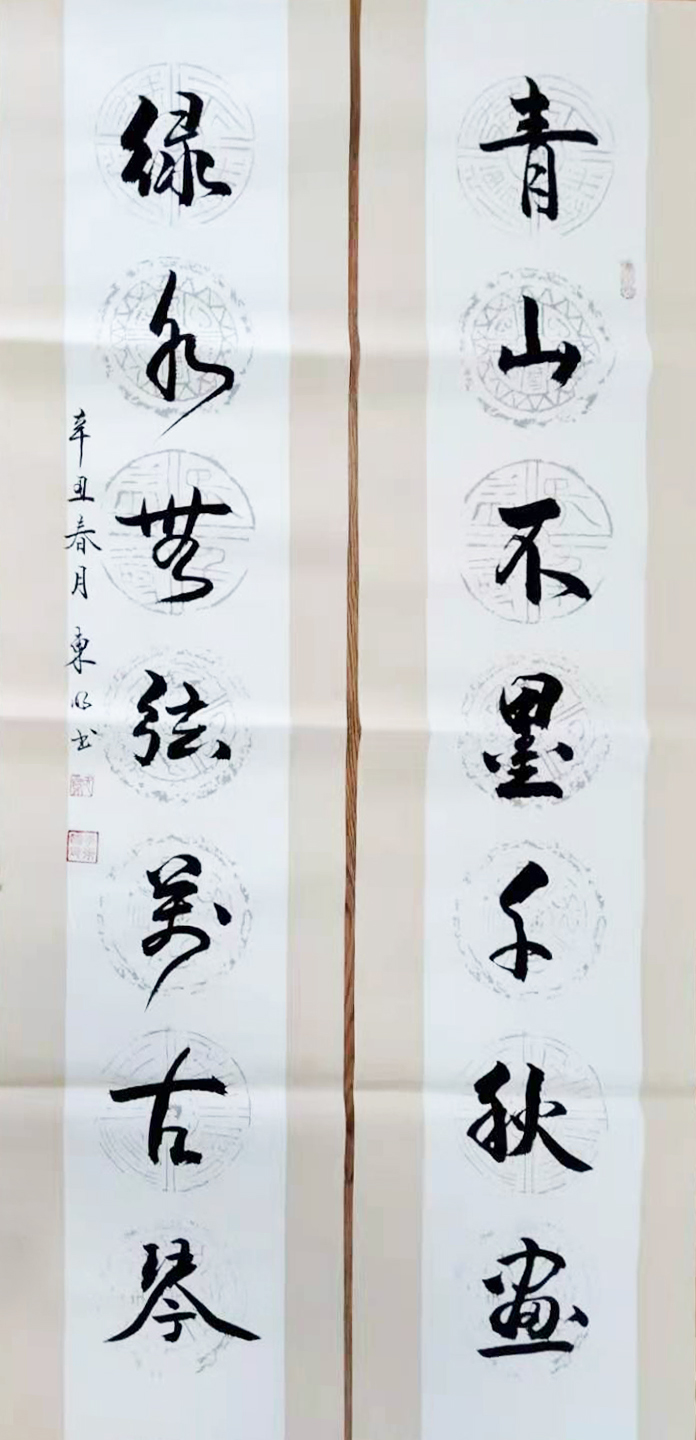 青山不墨千秋畫
绿水無弦萬古琴
辛丑春月 東明书